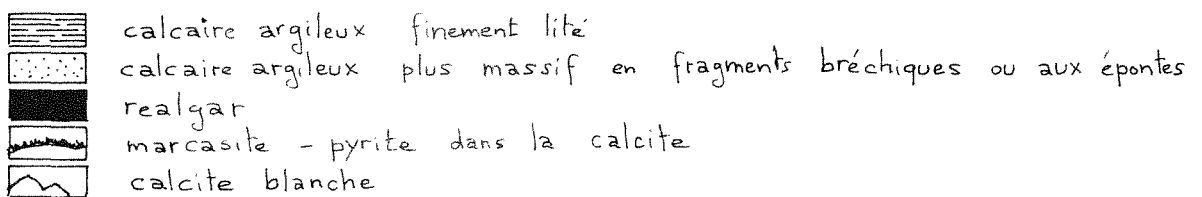 calcaire argileux finement lité
calcaire argileux plus massif en fragments bréchiques ou aux épontes
realgar
marcasite - pyrite dans la calcite
calcite blanche